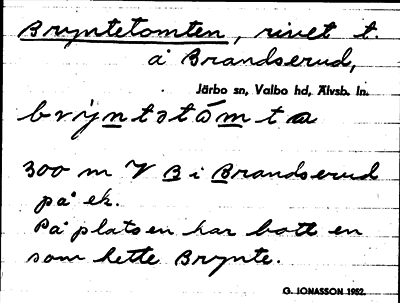 Bryntetomten, rivet t.
å Brandserud,
Järbo sn, Valbo hd, Älvsb. ln.
brỳntətǻmta
300 m V B i Brandserud
på ek.
På platsen har bott en
som hette Brynte.
G. JONASSON 1952.